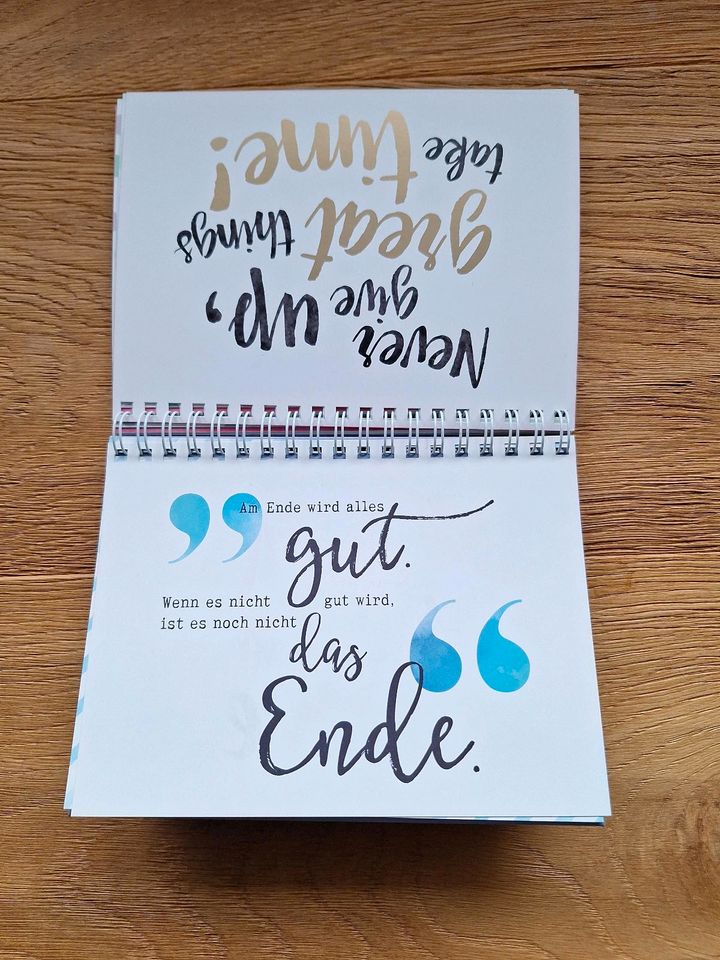 Never
give up,
great things
take time!
Am Ende wird alles
gut.
Wenn es nicht gut wird,
ist es noch nicht
das
Ende.